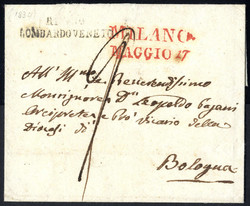 REGNO
LOMBARDO VENETO
MILANO
MAGGIO 17
All' Reverendissimo
Monsignore Dn Leopoldo Pagani
Arciprete e Pro Vicario della
Diocesi di
Bologna